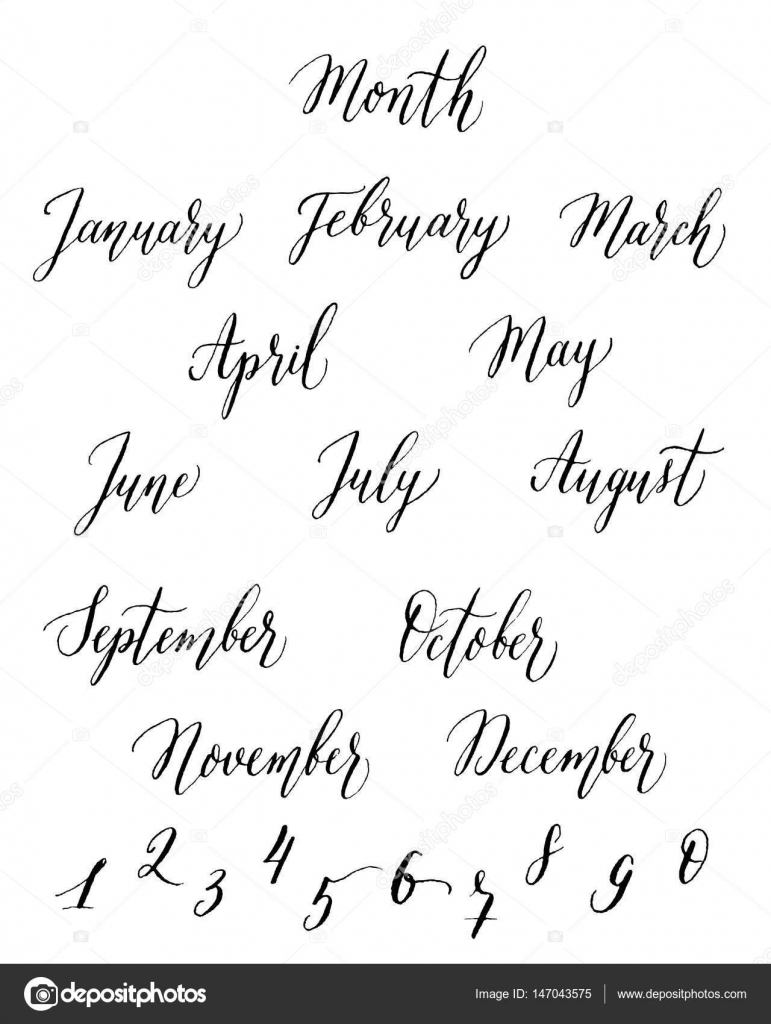 Month
January February March
April May
June July August
September October
November December
1 2 3 4 5 6 7 8 9 0
depositphotos Image ID: 147043575 www.depositphotos.com